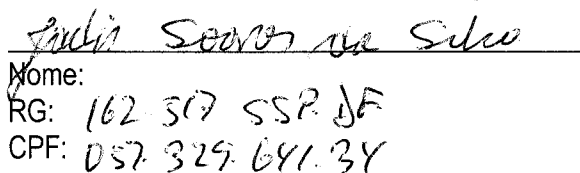 Soares da Silva
Nome:
RG: 162.317 SSP.DF
CPF: 057.329.641.34